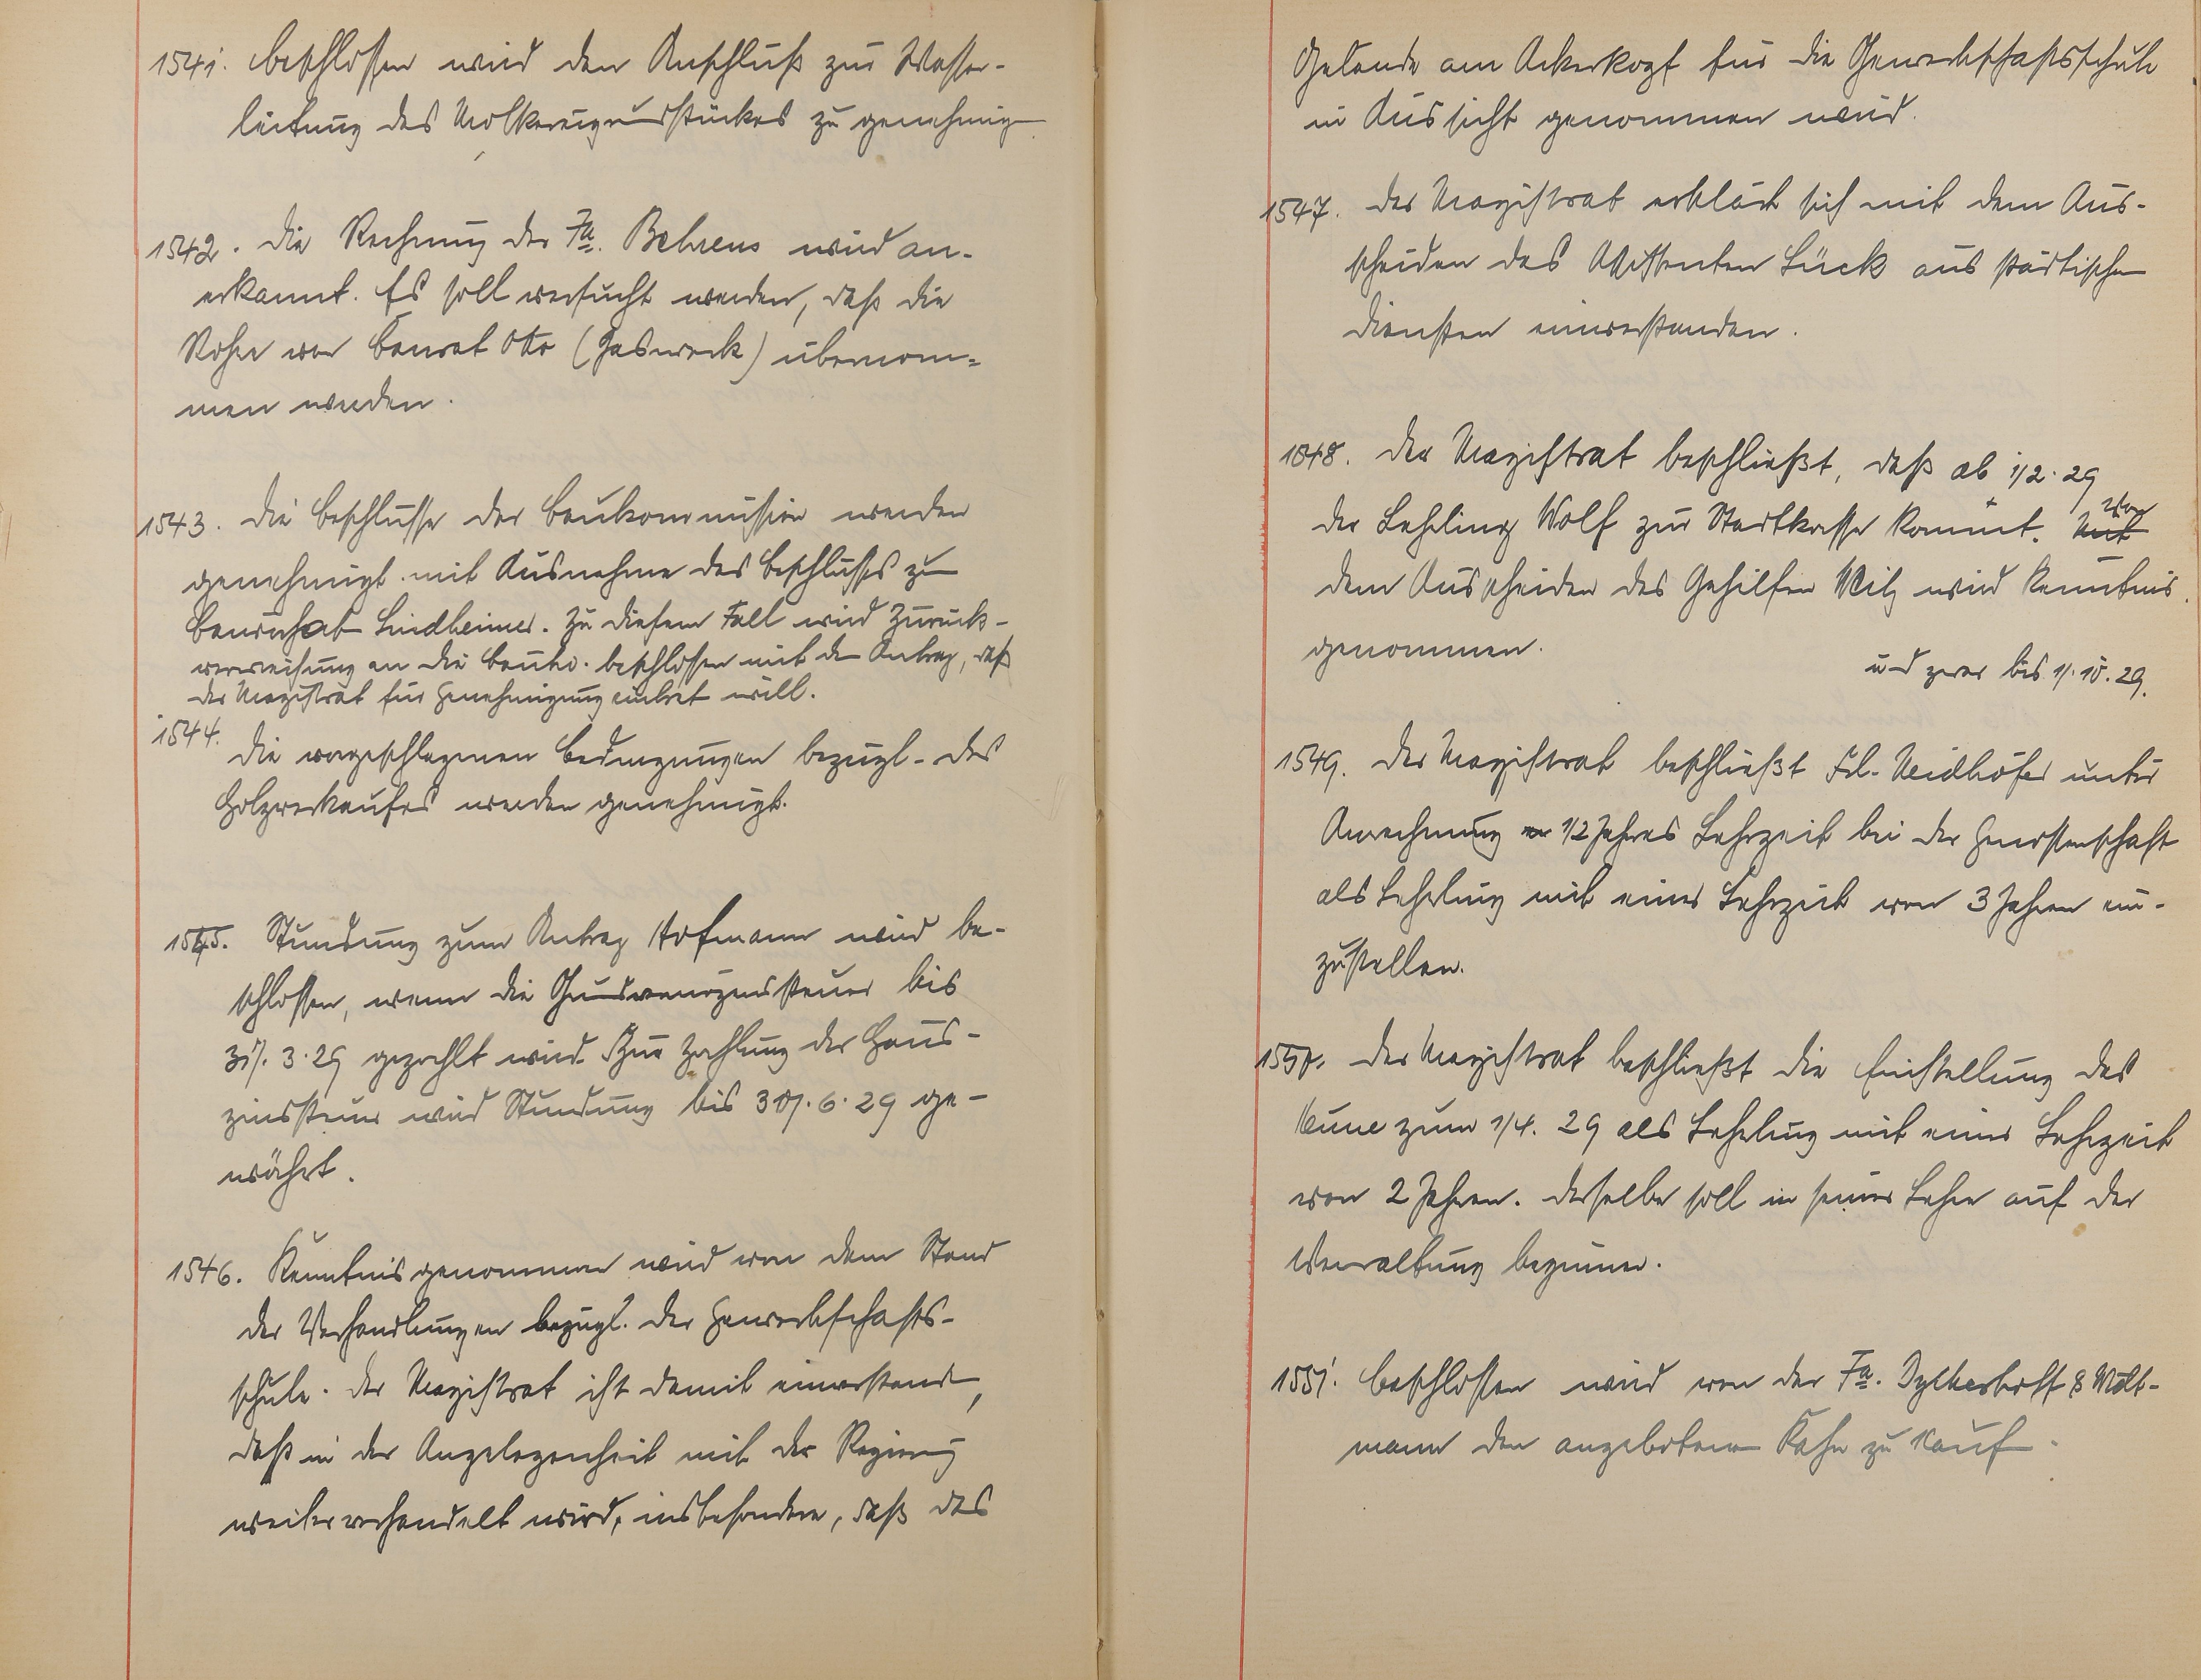 1541. Beschlossen wird den Anschluß zur Wasser-
leitung des Molkereigrundstückes zu genehmigen
1542. Die Rechnung der Fa. Behrens wird an-
erkannt. Es soll versucht werden, daß die
Rohre von Baurat Otto (Gaswerk) übernom-
men werden.
1543. Die Beschlüsse der Baukommission werden
genehmigt mit Ausnahme des Beschlusses zum
Baugesuch Lindheimer. Zu diesem Fall wird Zurück-
verweisung an die Bauko. beschlossen mit dem Antrag, daß
der Magistrat für Genehmigung eintret will.
1544.
Die vorgeschlagenen Bedingungen bezügl. des
Holzverkaufes werden genehmigt.
1545. Stundung zum Antrag Hofmann wird be-
schlossen, wenn die Grundvermögenssteuer bis
31/. 3. 29 gezahlt wird. Zur Zahlung der Haus-
zinssteuer wird Stundung bis 30/. 6. 29 ge-
währt.
1546. Kenntnis genommen wird von dem Stand
der Verhandlungen bezügl. der Gewerkschafts-
schule. Der Magistrat ist damit einverstanden,
daß in der Angelegenheit mit der Regierung
weiter verhandelt wird, insbesondere, daß das
Gelände am Ackerkopf für die Gewerkschaftsschule
in Aussicht genommen wird.
1547. Der Magistrat erklärt sich mit dem Aus-
scheiden des Assistenten Lück aus städtischen
Diensten einverstanden.
1548. Der Magistrat beschließt, daß ab 1/2. 29
der Lehrling Wolf zur Stadtkasse kommt. Mit Von
dem Ausscheiden des Gehilfen Wilz wird Kenntnis
genommen.
und zwar bis 1/. 10. 29.
1549. Der Magistrat beschließt Frl. Neidhöfer unter
Anrechnung 1/2 Jahres Lehrzeit bei der Genossenschaft
als Lehrling mit einer Lehrzeit von 3 Jahren ein-
zustellen.
1550. Der Magistrat beschließt die Einstellung des
zum 1/4. 29 als Lehrling mit einer Lehrzeit
von 2 Jahren. Derselbe soll in seiner Lehre auf der
Verwaltung beginnen.
1551. Beschlossen wird von der Fa. Dyckerhoff & Widt-
mann den angebotenen Kahn zu kaufen.